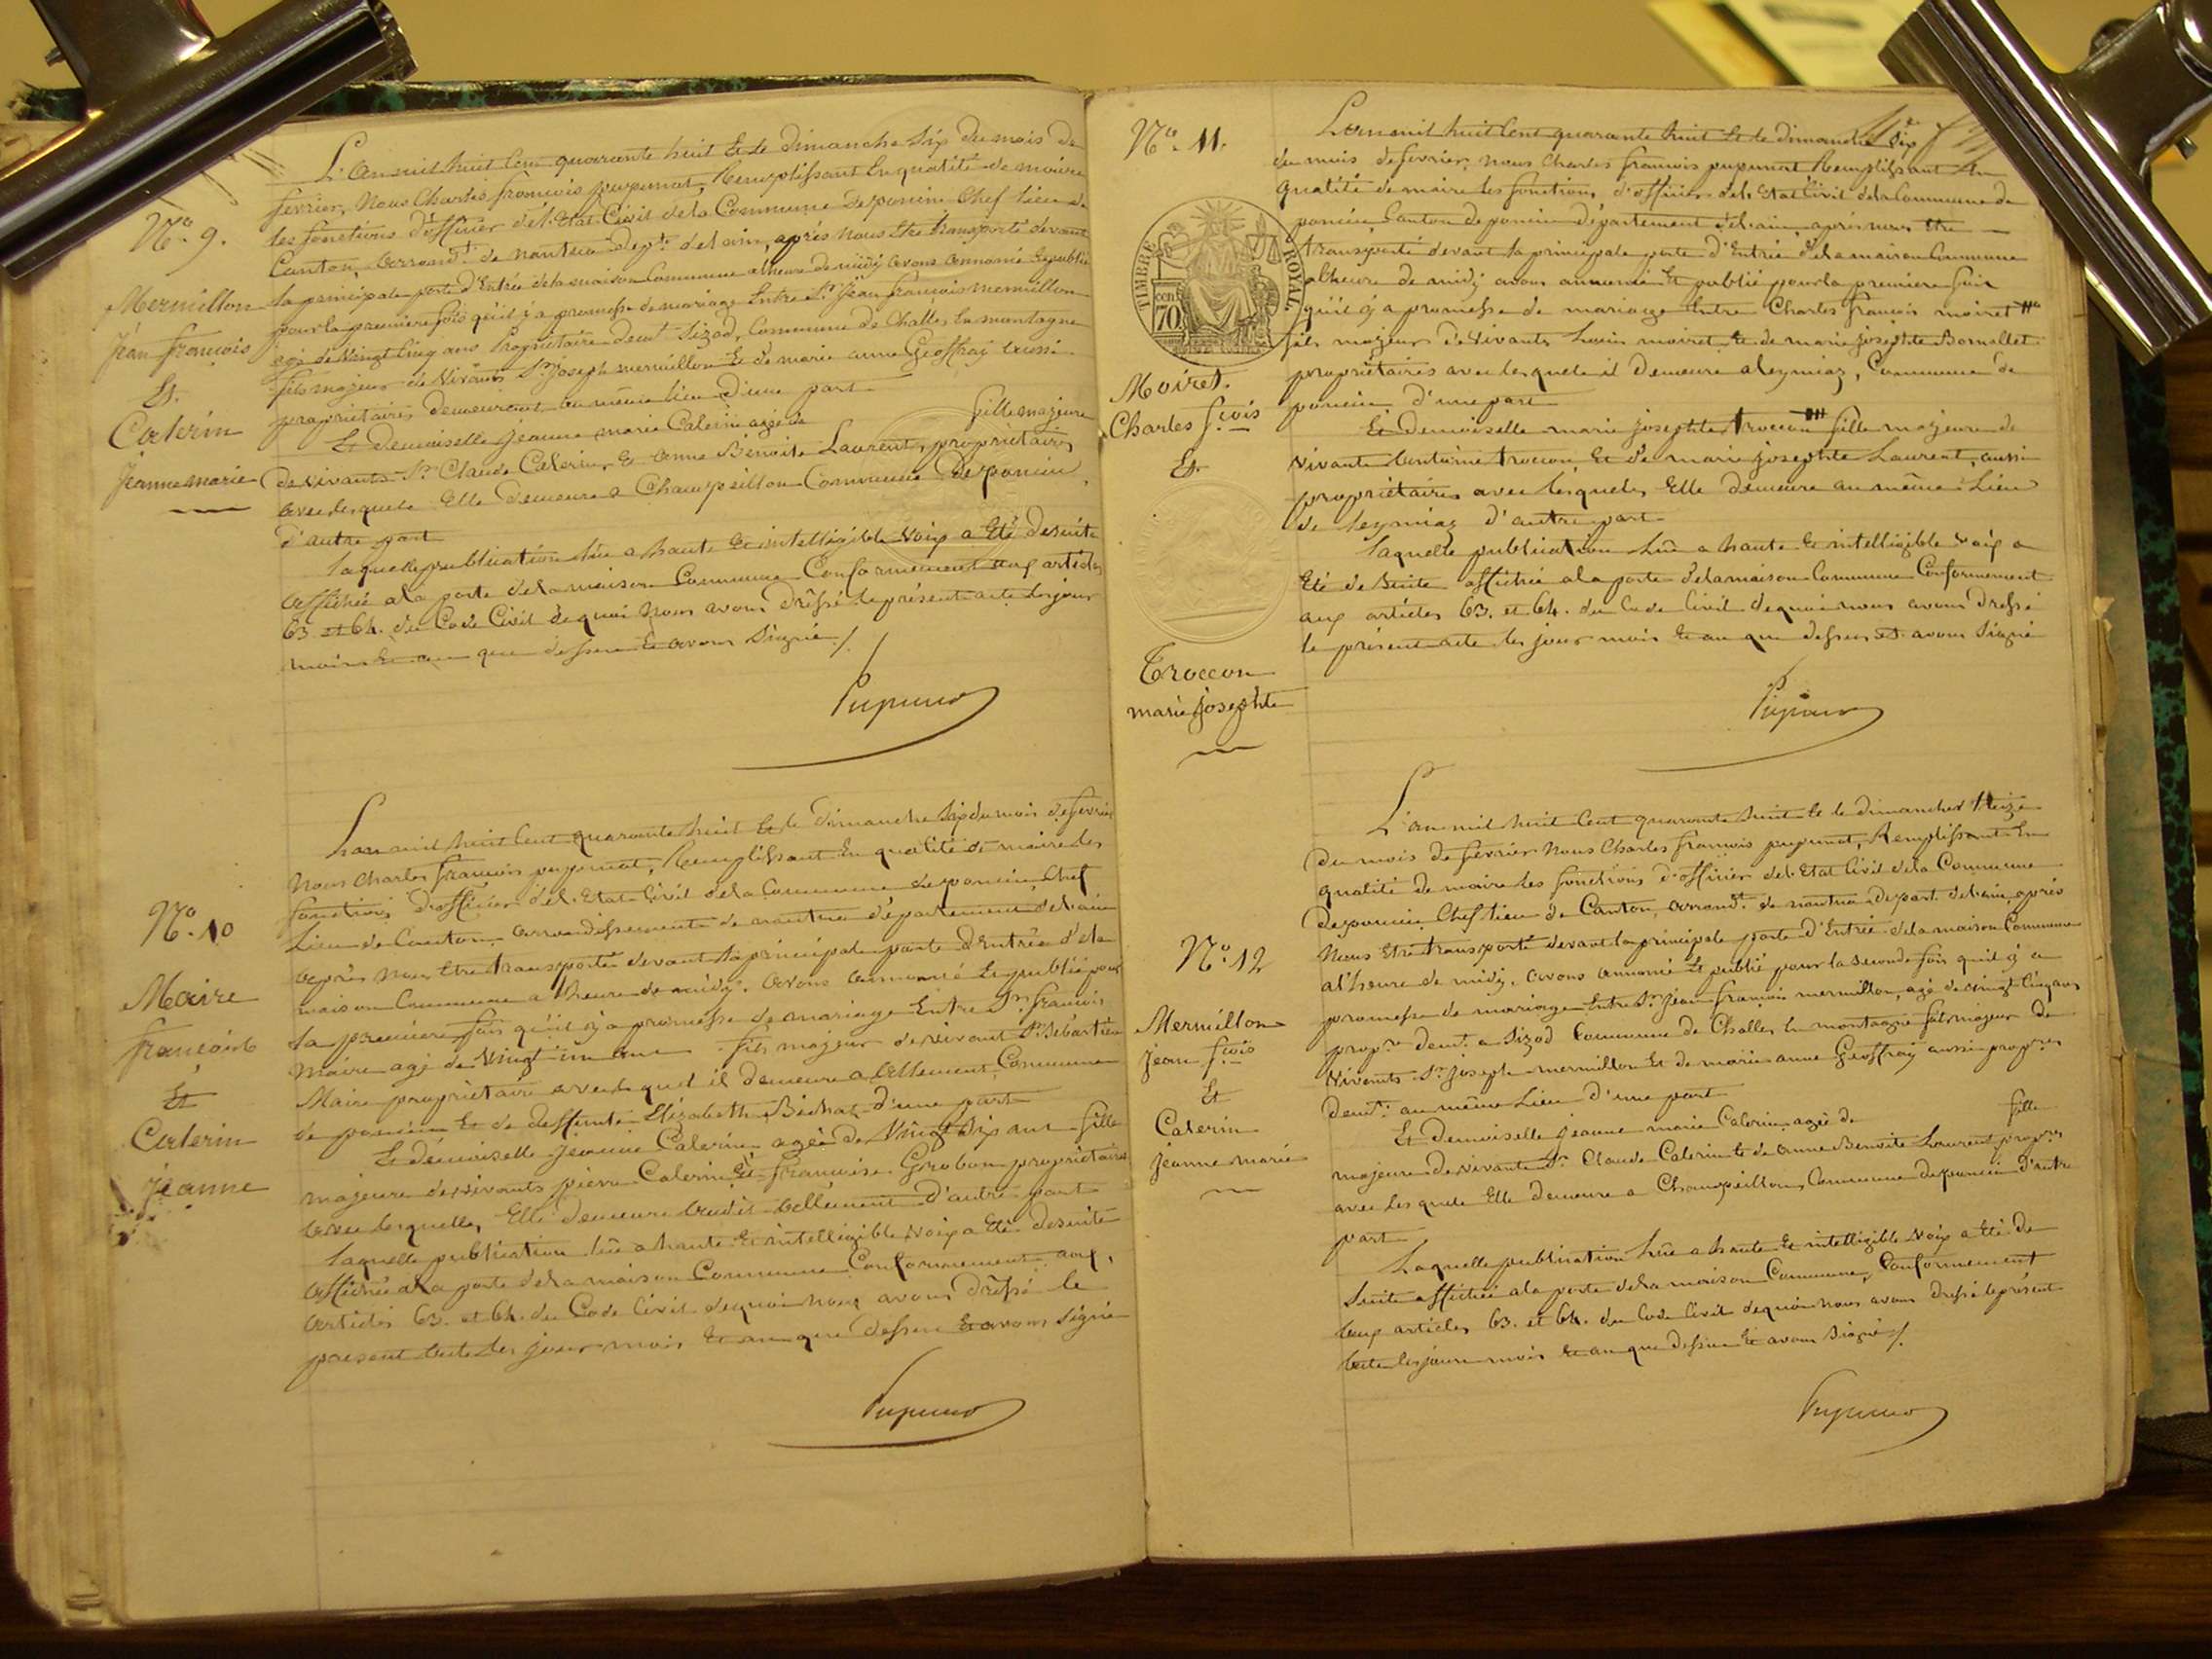 N.o 9.
Mermillon
Jean françois
Et.
Caterin
Jeanne marie
L'an mil huit Cent quarante huit Et le dimanche Six du mois de
fevrier, Nous Charles françois pupunat, Remplissant En qualité de maire
les fonctions d'officier de l'Etat Civil de la Commune de poncin Chef lieu de
Canton, arrond.t de nantua dep.t de l'ain, après nous Etre transporté devant
la principale porte d'Entrée de la maison Commune a l'heure de midy avons annoncé Et publié
pour la premiere fois qu'il y a promesse de mariage Entre S.r Jean françois mermillon
agé de vingt Cinq ans Propriétaire dem.t Sizod, Commune de Challes la montagne
fils majeur de Vivants S.r joseph mermillon Et de marie anne Geoffray aussi
propriétaires demeurant au même lieu d'une part
Et Demoiselle Jeanne marie Caterin agée de fille majeure
de vivants S.r Claude Caterin, Et anne Benoite Laurent, propriétaires
avec lesquels Elle demeure a Champeillon Commune de poncin,
d'autre part
laquelle publication lüe a haute Et intelligible voix a Eté de suite
affichée a la porte de la maison Commune Conformement aux articles
63. et 64. du Code Civil de quoi nous avons dressé le présent acte les jour
mois Et an que dessus Et avons Signé ./.
Pupunat
N.o 10
Maire
françois
Et
Caterin
jeanne
L'an mil huit Cent quarante huit Et le dimanche Six du mois de fevrier
Nous Charles françois pupunat, Remplissant En qualité de maire les
fonctions d'officier de l'Etat Civil de la Commune de poncin, Chef
Lieu de Canton, arrondissement de nantua département de l'ain
après nous Etre transporté devant la principale porte d'Entrée de la
maison Commune a l'heure de midy. avons annoncé Et publié pour
la premiere fois qu'il y a promesse de mariage Entre S.r françois
Maire agé de vingt un ans fils majeur de vivant S.r Sébastien
Maire propriétaire avec lequel il demeure a Allement, Commune
de poncin Et de deffunte Elizabeth Bichat d'une part
Et demoiselle Jeanne Caterin, agée de vingt Six ans fille
majeure de vivants pierre Caterin Et françoise Grobon propriétaires
avec lesquelles, Elle demeure audit Allement d'autre part
laquelle publication lüe a haute Et intelligible voix a Eté de suite
affichée a la porte de la maison Commune Conformement aux,
articles 63. et 64. du Code Civil de quoi nous avons dressé le
présent acte les jour mois Et an que dessus Et avons Signé
Pupunat
N.o 11.
TIMBRE ROYAL
cen 70
Moiret.
Charles f.çois
Et.
Troccon
marie josephte
L'an mil huit Cent quarante huit Et le dimanche Six
du mois de fevrier, nous Charles françois pupunat Remplissant En
qualité de maire les fonctions d'officier de l'Etat Civil de la Commune de
poncin, Canton de poncin département de l'ain, après nous Etre
transporté devant la principale porte d'Entrée de la maison Commune
a l'heure de midy avons annoncé Et publié pour la premiere fois
qu'il y a promesse de mariage Entre Charles françois moiret
fils majeur de Vivants Louis moiret Et de marie josephte Bornallet
propriétaires avec lesquels il demeure a leymiaz, Commune de
poncin d'une part
Et Demoiselle marie josephte troccon fille majeure de
vivants Antoine troccon, Et de marie josephte Laurent, aussi
propriétaires avec lesquels, Elle demeure au même Lieu
de leymiaz d'autre part
laquelle publication lüe a haute Et intelligible voix a
Eté de Suite affichée a la porte de la maison Commune Conformement
aux articles 63. et 64. du Code Civil de quoi nous avons dressé
le présent acte les jour mois Et an que dessus et avons Signé
Pupunat
N.o 12
Mermillon
jean f.çois
Et
Caterin
jeanne marie
L'an mil huit Cent quarante huit Et le dimanche treize
du mois de fevrier Nous Charles françois pupunat, Remplissant En
qualité de maire les fonctions d'officier de l'Etat Civil de la Commune
de poncin, Chef lieu de Canton, arrond.t de nantua depart. de l'ain, après
Nous Etre transporté devant la principale porte d'Entrée de la maison Commune
a l'heure de midy. avons annoncé Et publié pour la Seconde fois qu'il y a
promesse de mariage Entre S.r Jean françois mermillon, agé de vingt Cinq ans
prop.re dem.t a Sizod Commune de Challes la montagne fils majeur de
Vivants S.r joseph mermillon Et de marie anne Geoffray aussi prop.res
dem.t au même Lieu d'une part
Et demoiselle jeanne marie Caterin, agée de fille
majeure de vivants S.r Claude Caterin Et de anne Benoite Laurent prop.res
avec lesquels Elle demeure a Champeillon, Commune de poncin d'autre
part
Laquelle publication lüe a haute Et intelligible voix a Eté de
Suite affichée a la porte de la maison Commune, Conformement
aux articles 63. et 64. du Code Civil de quoi nous avons dressé le présent
acte les jour mois Et an que dessus Et avons Signé ./.
Pupunat